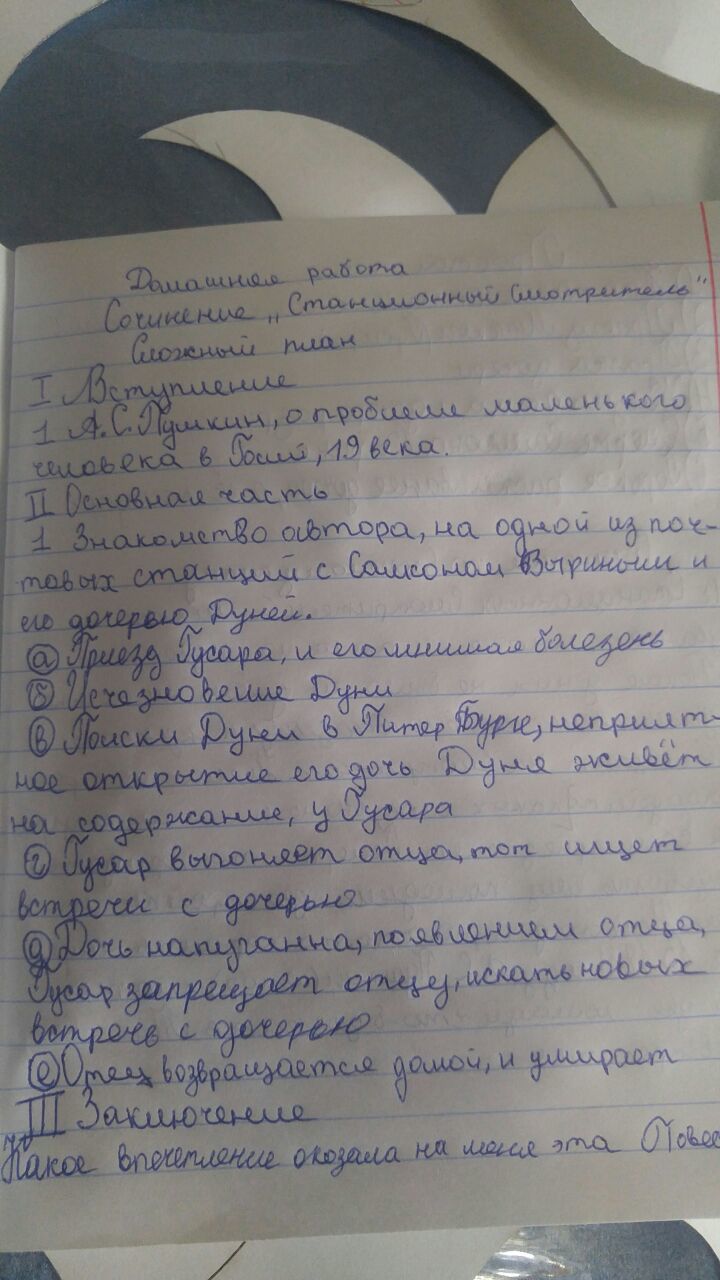 Домашняя работа
Сочинение „Станционный Смотритель"
Сложный план
I Вступление
1 А.С.Пушкин, о проблеме маленького
человека в 19 века.
II Основная часть
1 Знакомство автора, на одной из поч-
товых станций с Самсоном Выриным и
его дочерью Дуней.
а Приезд Гусара, и его мнимая болезень
б Исчезновение Дуни
в Поиски Дуни в Питер Бурге, неприят-
ное открытие его дочь Дуня живёт
на содержание, у Гусара
г Гусар выгоняет отца, тот ищет
встречи с дочерью
д Дочь напуганна, появлением отца,
Гусар запрещает отцу, искать новых
встречь с дочерью
е Отец возвращается домой, и умирает
III Заключение
Какое впечетление оказала на меня эта Повес